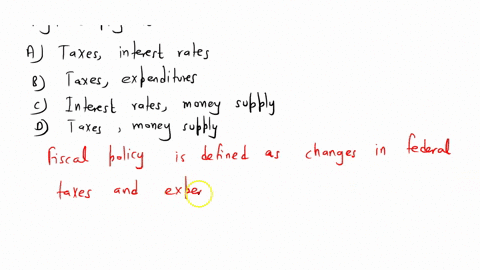 A) Taxes, interest rates
B) Taxes, expenditures
C) Interest rates, money supply
D) Taxes, money supply
Fiscal policy is defined as changes in federal
taxes and exper